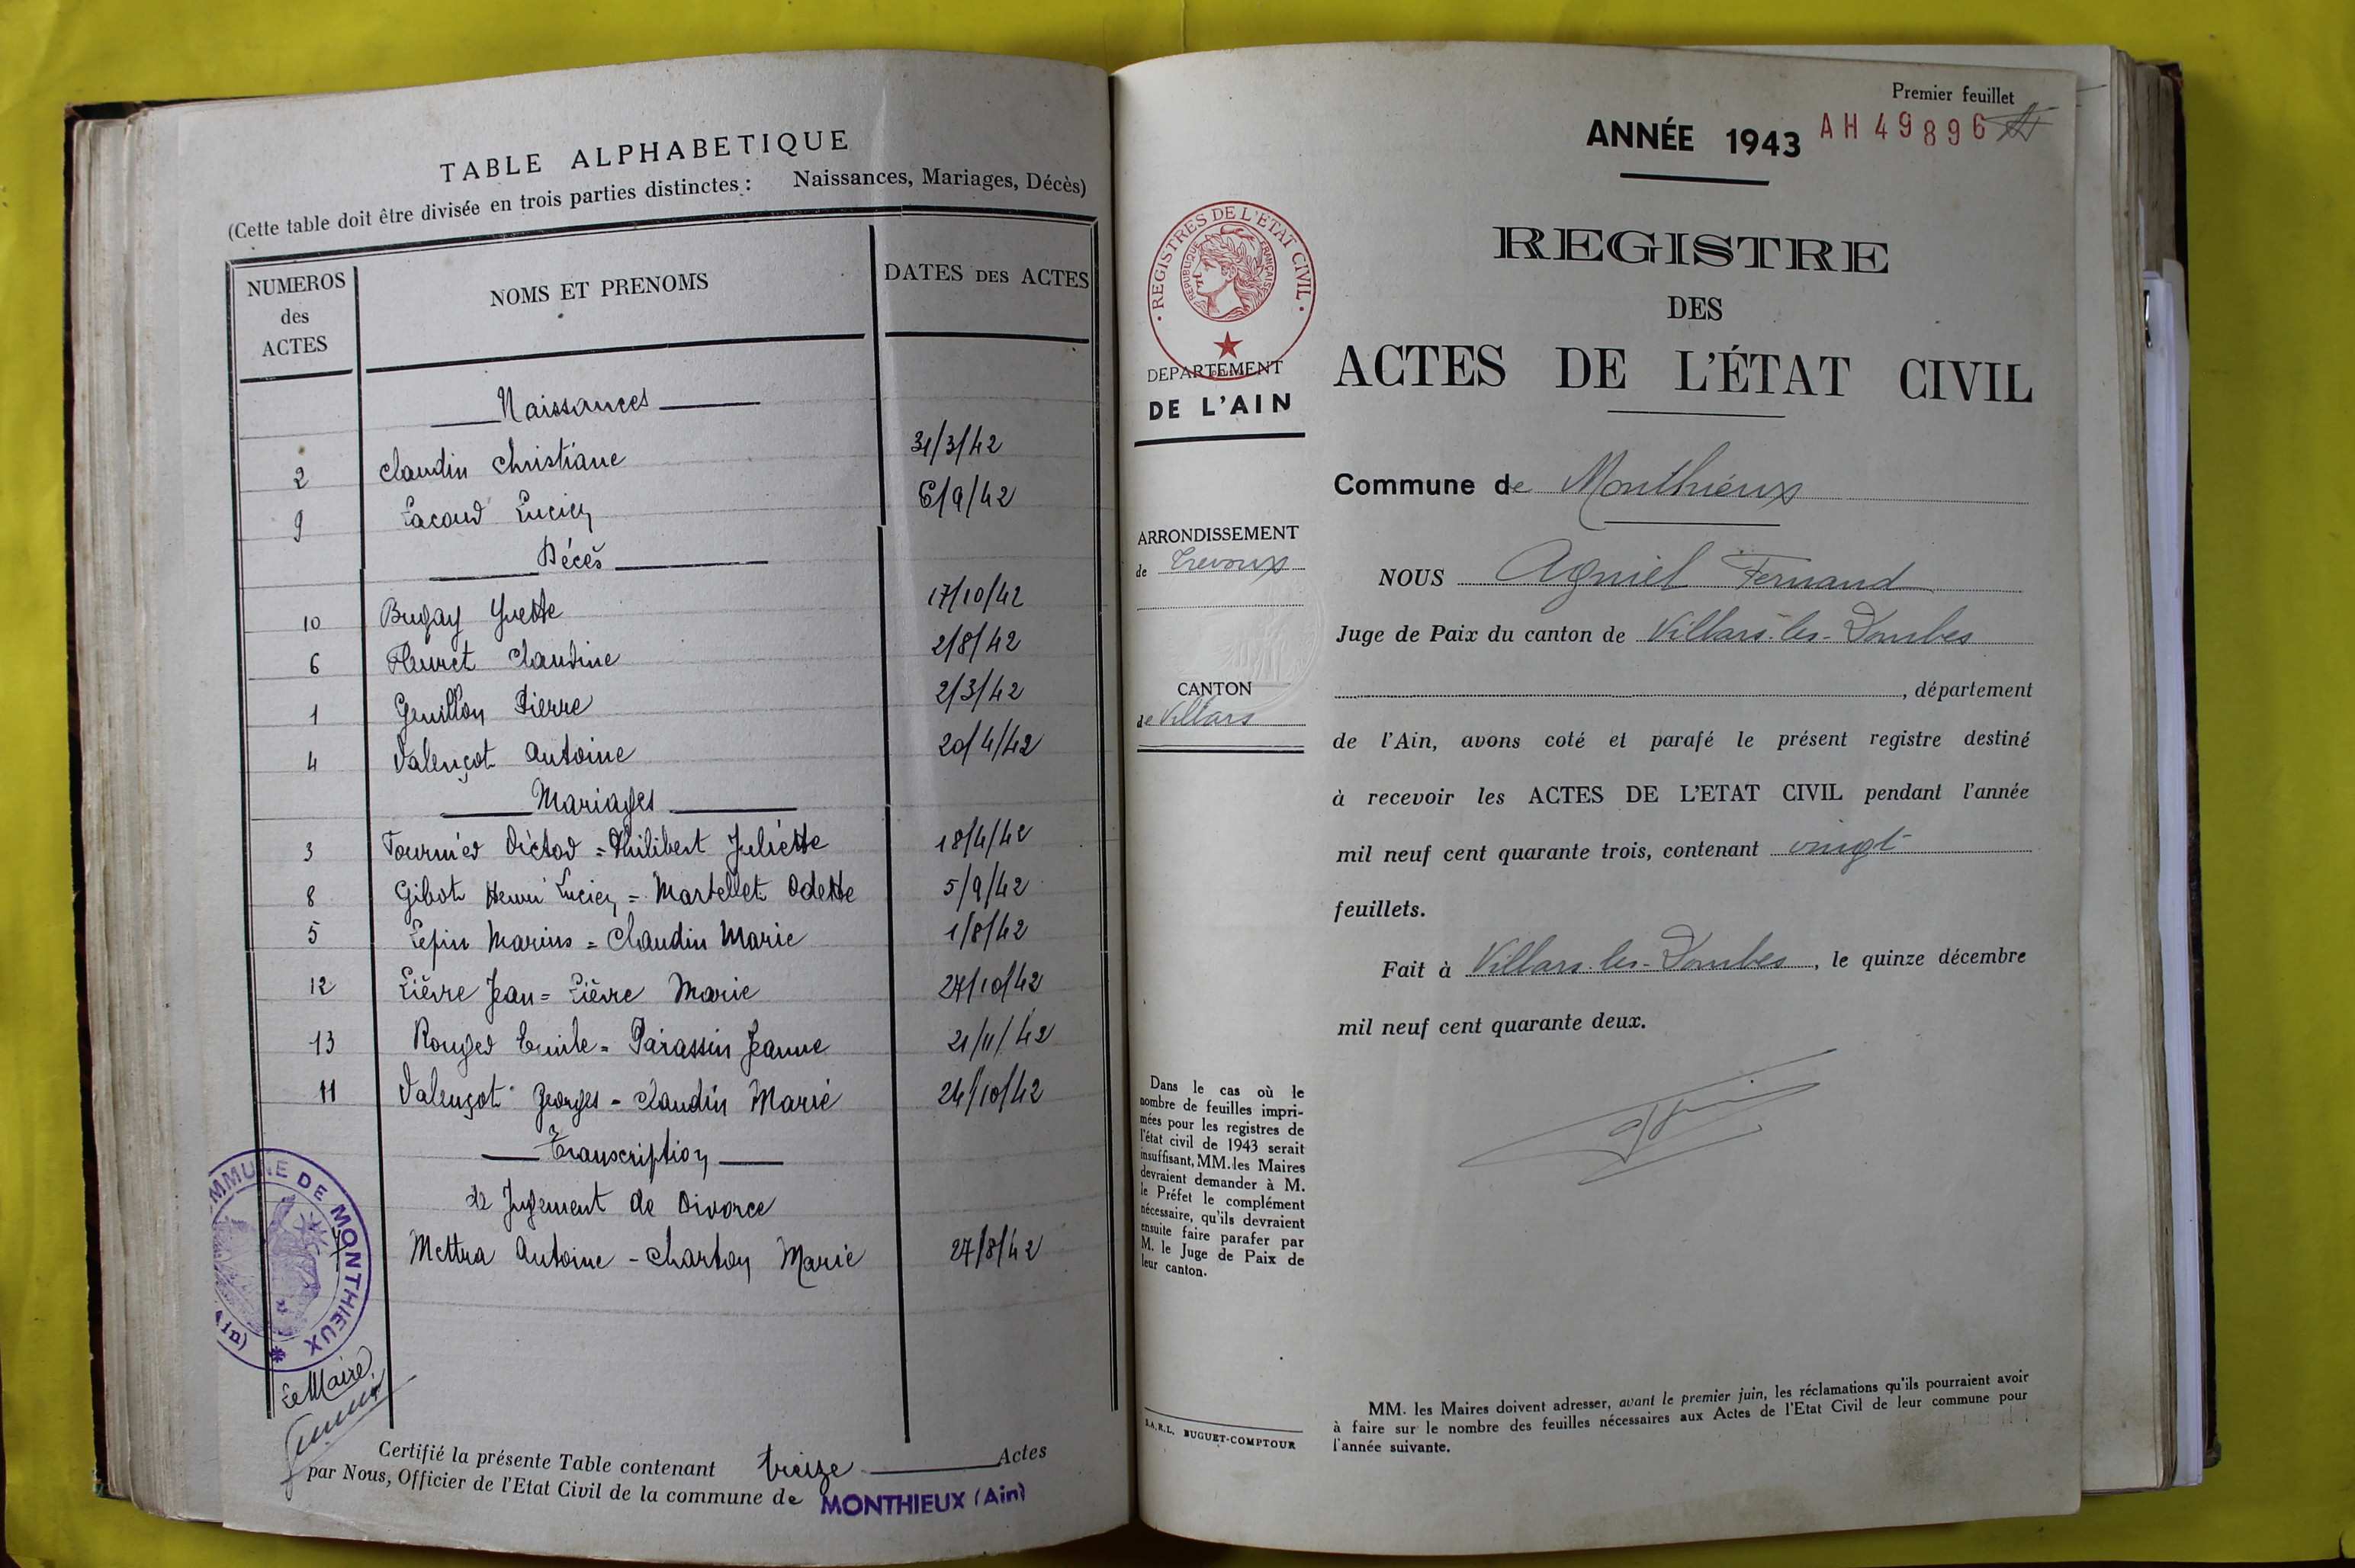 TABLE ALPHABETIQUE
(Cette table doit être divisée en trois parties distinctes : Naissances, Mariages, Décès)
NUMEROS des ACTES
NOMS ET PRENOMS
DATES DES ACTES
Naissances
2 Claudin Christiane 31/3/42
9 Lacoud Lucien 6/9/42
Décès
10 Bugay Yvette 17/10/42
6 Fleuret Claudine 2/8/42
1 Genillon Pierre 2/3/42
4 Valençot Antoine 20/4/42
Mariages
3 Fournier Victor = Philibert Juliette 18/4/42
8 Gibot Henri Lucien = Martellet Odette 5/9/42
5 Lepin Marius = Claudin Marie 1/8/42
12 Lièvre Jean = Lièvre Marie 27/10/42
13 Rouger Emile = Parassin Jeanne 21/11/42
11 Valençot Georges - Claudin Marie 24/10/42
Transcription
de Jugement de Divorce
Mettra Antoine - Charton Marie 27/8/42
MMUNE DE MONTHIEUX
Le Maire
Certifié la présente Table contenant treize Actes
par Nous, Officier de l'Etat Civil de la commune de MONTHIEUX (Ain)
Premier feuillet
ANNÉE 1943 AH 49896
REGISTRES DE L'ETAT CIVIL
REPUBLIQUE FRANÇAISE
DEPARTEMENT
DE L'AIN
REGISTRE
DES
ACTES DE L'ÉTAT CIVIL
Commune de Monthieux
ARRONDISSEMENT
de Trévoux
CANTON
de Villars
NOUS Agniel Fernand
Juge de Paix du canton de Villars-les-Dombes
, département
de l'Ain, avons coté et parafé le présent registre destiné
à recevoir les ACTES DE L'ETAT CIVIL pendant l'année
mil neuf cent quarante trois, contenant vingt
feuillets.
Fait à Villars-les-Dombes, le quinze décembre
mil neuf cent quarante deux.
Dans le cas où le
nombre de feuilles impri-
mées pour les registres de
l'état civil de 1943 serait
insuffisant, MM. les Maires
devraient demander à M.
le Préfet le complément
nécessaire, qu'ils devraient
ensuite faire parafer par
M. le Juge de Paix de
leur canton.
S.A.R.L. BUGUET-COMPTOUR
MM. les Maires doivent adresser, avant le premier juin, les réclamations qu'ils pourraient avoir
à faire sur le nombre des feuilles nécessaires aux Actes de l'Etat Civil de leur commune pour
l'année suivante.